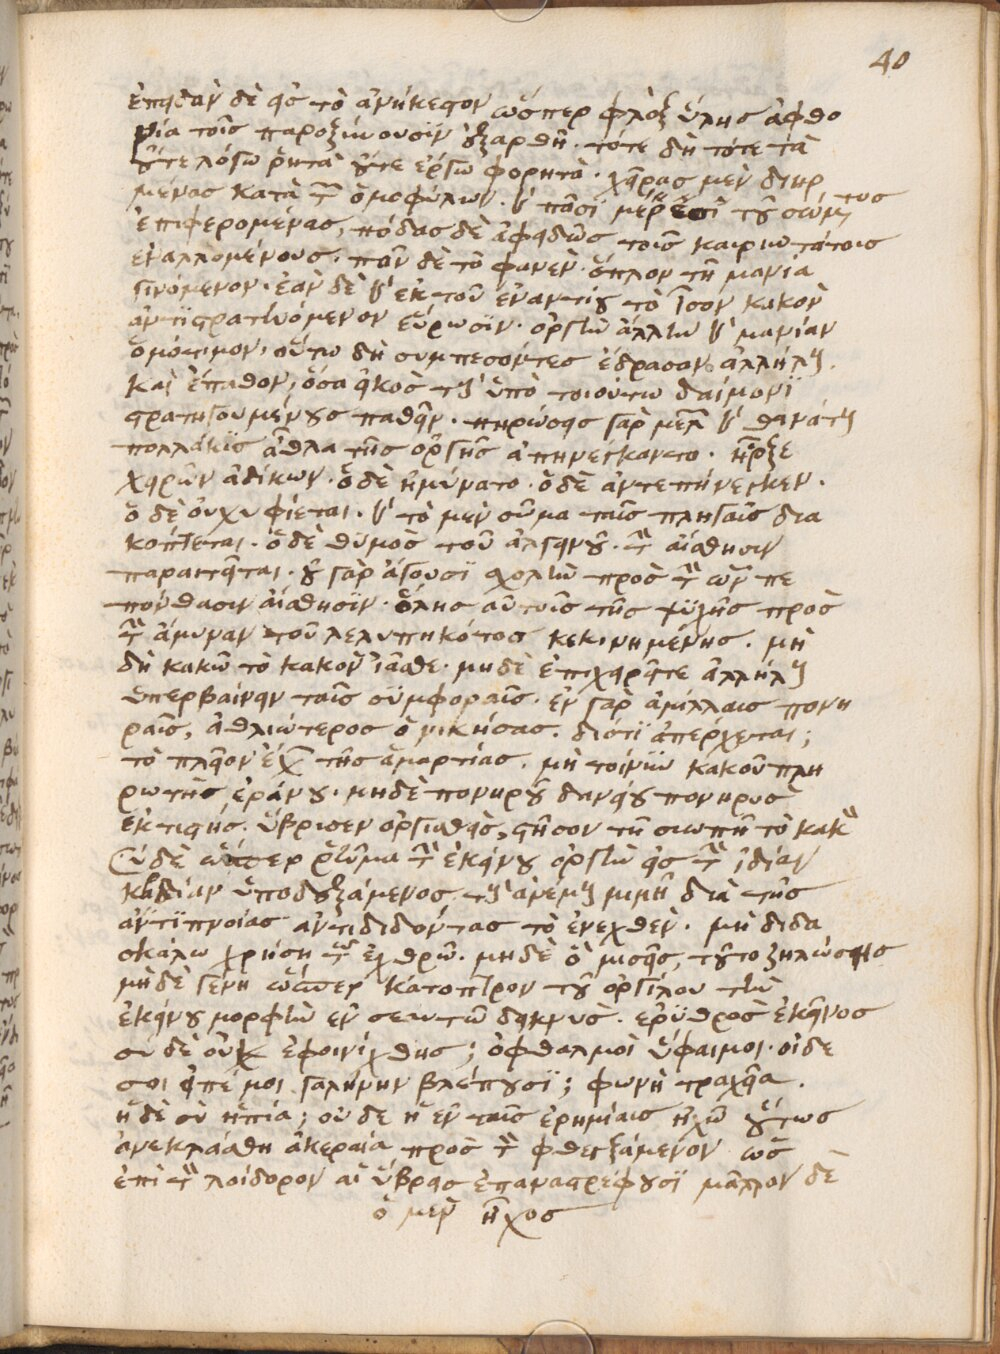 40
ἐπειδὰν δὲ εἰς τὸ ἀνήκεστον ὥσπερ φλὸξ ὕλης ἀφθο
νία τοῖς παροξύνουσϊν ἐξαρθῇ· τότε δὴ τότε τὰ
οὔτε λόγω ῥητὰ οὔτε ἔργω φορητὰ· χεῖρας μὲν διηρ
μένας κατὰ τῶν ὁμοφύλων· καὶ πᾶσϊ μέρεσϊ τοῦ σώματος
ἐπιφερομένας, πόδας δὲ ἀφειδῶς τοῖς καιριωτάτοις
ἐναλλομένους· πᾶν δὲ τὸ φανὲν ὅπλον τῇ μανία
γινόμενον· ἐὰν δὲ καὶ ἐκ τοῦ ἐναντίου τὸ ἴσον κακὸν
ἀντϊστρατευόμενον εὕρωσϊν· ὀργὴν ἄλλην καὶ μανίαν
ὁμότιμον· οὕτω δὴ συμπεσόντες ἔδρασαν ἀλλήλους
καὶ ἔπαθον, ὅσα εἰκὸς τοὺς ὑπὸ τοιούτω δαίμονϊ
στρατηγουμένους παθεῖν· πηρώσεις γὰρ μελῶν καὶ θανάτους
πολλάκϊς ἆθλα τῆς ὀργῆς ἀπηνέγκαντο· ἦρξε
χειρῶν ἀδίκων· ὁ δὲ ἠμύνατο· ὁ δὲ ἀντεπήνεγκεν·
ὁ δὲ οὐχ ὑφίεται· καὶ τὸ μὲν σῶμα ταῖς πληγαῖς δια
κόπτεται· ὁ δὲ θυμὸς τοῦ ἀλγεινοῦ· τὴν αἴσθησιν
παραιτεῖται· οὐ γὰρ ἄγουσϊ σχολὴν πρὸς τὴν ὧν πε
πόνθασιν αἴσθησϊν· ὅλης αὐτοῖς τῆς ψϋχῆς πρὸς
τὴν ἄμυναν τοῦ λελυπηκότος κεκινημένης. μὴ
δὴ κακῶ τὸ κακὸν ἰᾶσθε· μηδὲ ἐπιχειρεῖτε ἀλλήλους
ὑπερβαίνειν ταῖς συμφοραῖς· ἐν γὰρ ἁμίλλαις πονη
ραῖς, ἀθλιώτερος ὁ νικήσας· διότϊ ἀπέρχεται;
τὸ πλεῖον ἔχων τῆς ἁμαρτίας. μὴ τοίνυν κακοῦ πλη
ρωτὴς ἐράνου· μηδὲ πονηροῦ δανείου πονηρὸς
ἐκτιστής. ὕβρισεν ὀργισθεὶς, στῆσον τῇ σιωπῇ τὸ κακὸν
σὺ δὲ ὥσπερ ῥεῦμα τὴν ἐκείνου ὀργὴν εἰς τὴν ἰδίαν
καρδίαν ὑποδεξάμενος τοὺς ἀνέμους μιμῇ διὰ τῆς
ἀντϊπνοίας ἀντιδιδόντας τὸ ἐνεχθὲν. μὴ διδα
σκάλω χρήσῃ τῶ ἐχθρῶ· μηδὲ ὃ μισεῖς, τοῦτο ζηλώσῃς
μηδὲ γένη ὥσπερ κάτοπτρον τοῦ ὀργίλου τὴν
ἐκείνου μορφὴν ἐν σεαυτῶ δεικνὺς. ἐρϋθρὸς ἐκεῖνος
σὺ δὲ οὐκ ἐφοινίχθης; ὀφθαλμοὶ ὕφαιμοι· οἱ δὲ
σοι εἰπέ μοι γαλήνην βλέπουσϊ; φωνὴ τραχεῖα.
ἡ δὲ σὴ ἠπία; οὐδε ἡ ἐν ταῖς ἐρημίαις ἠχὼ οὕτως
ἀνεκλάσθη ἀκεραία πρὸς τὸν φθεγξάμενον ὡς
ἐπὶ τὸν λοίδορον αἱ ὕβρεις ἐπαναστρέφουσϊ μᾶλλον δὲ
ὁ μὲν ἦχος